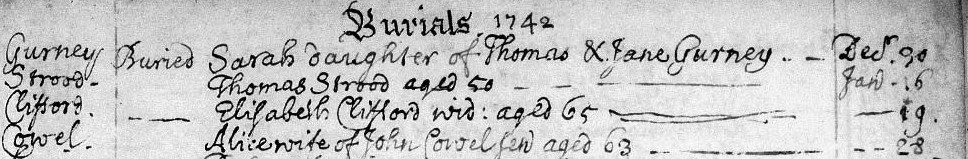 Burials. 1742
Gurney Buried Sarah daughter of Thomas & Jane Gurney .. — Decr. 30
Strood - Thomas Strood aged 50 — — — Jan - 16
Clifford. — — Elisabeth Clifford wid: aged 65 — — 19.
Cowel. Alice wife of John Cowel sen aged 63 — — — 28